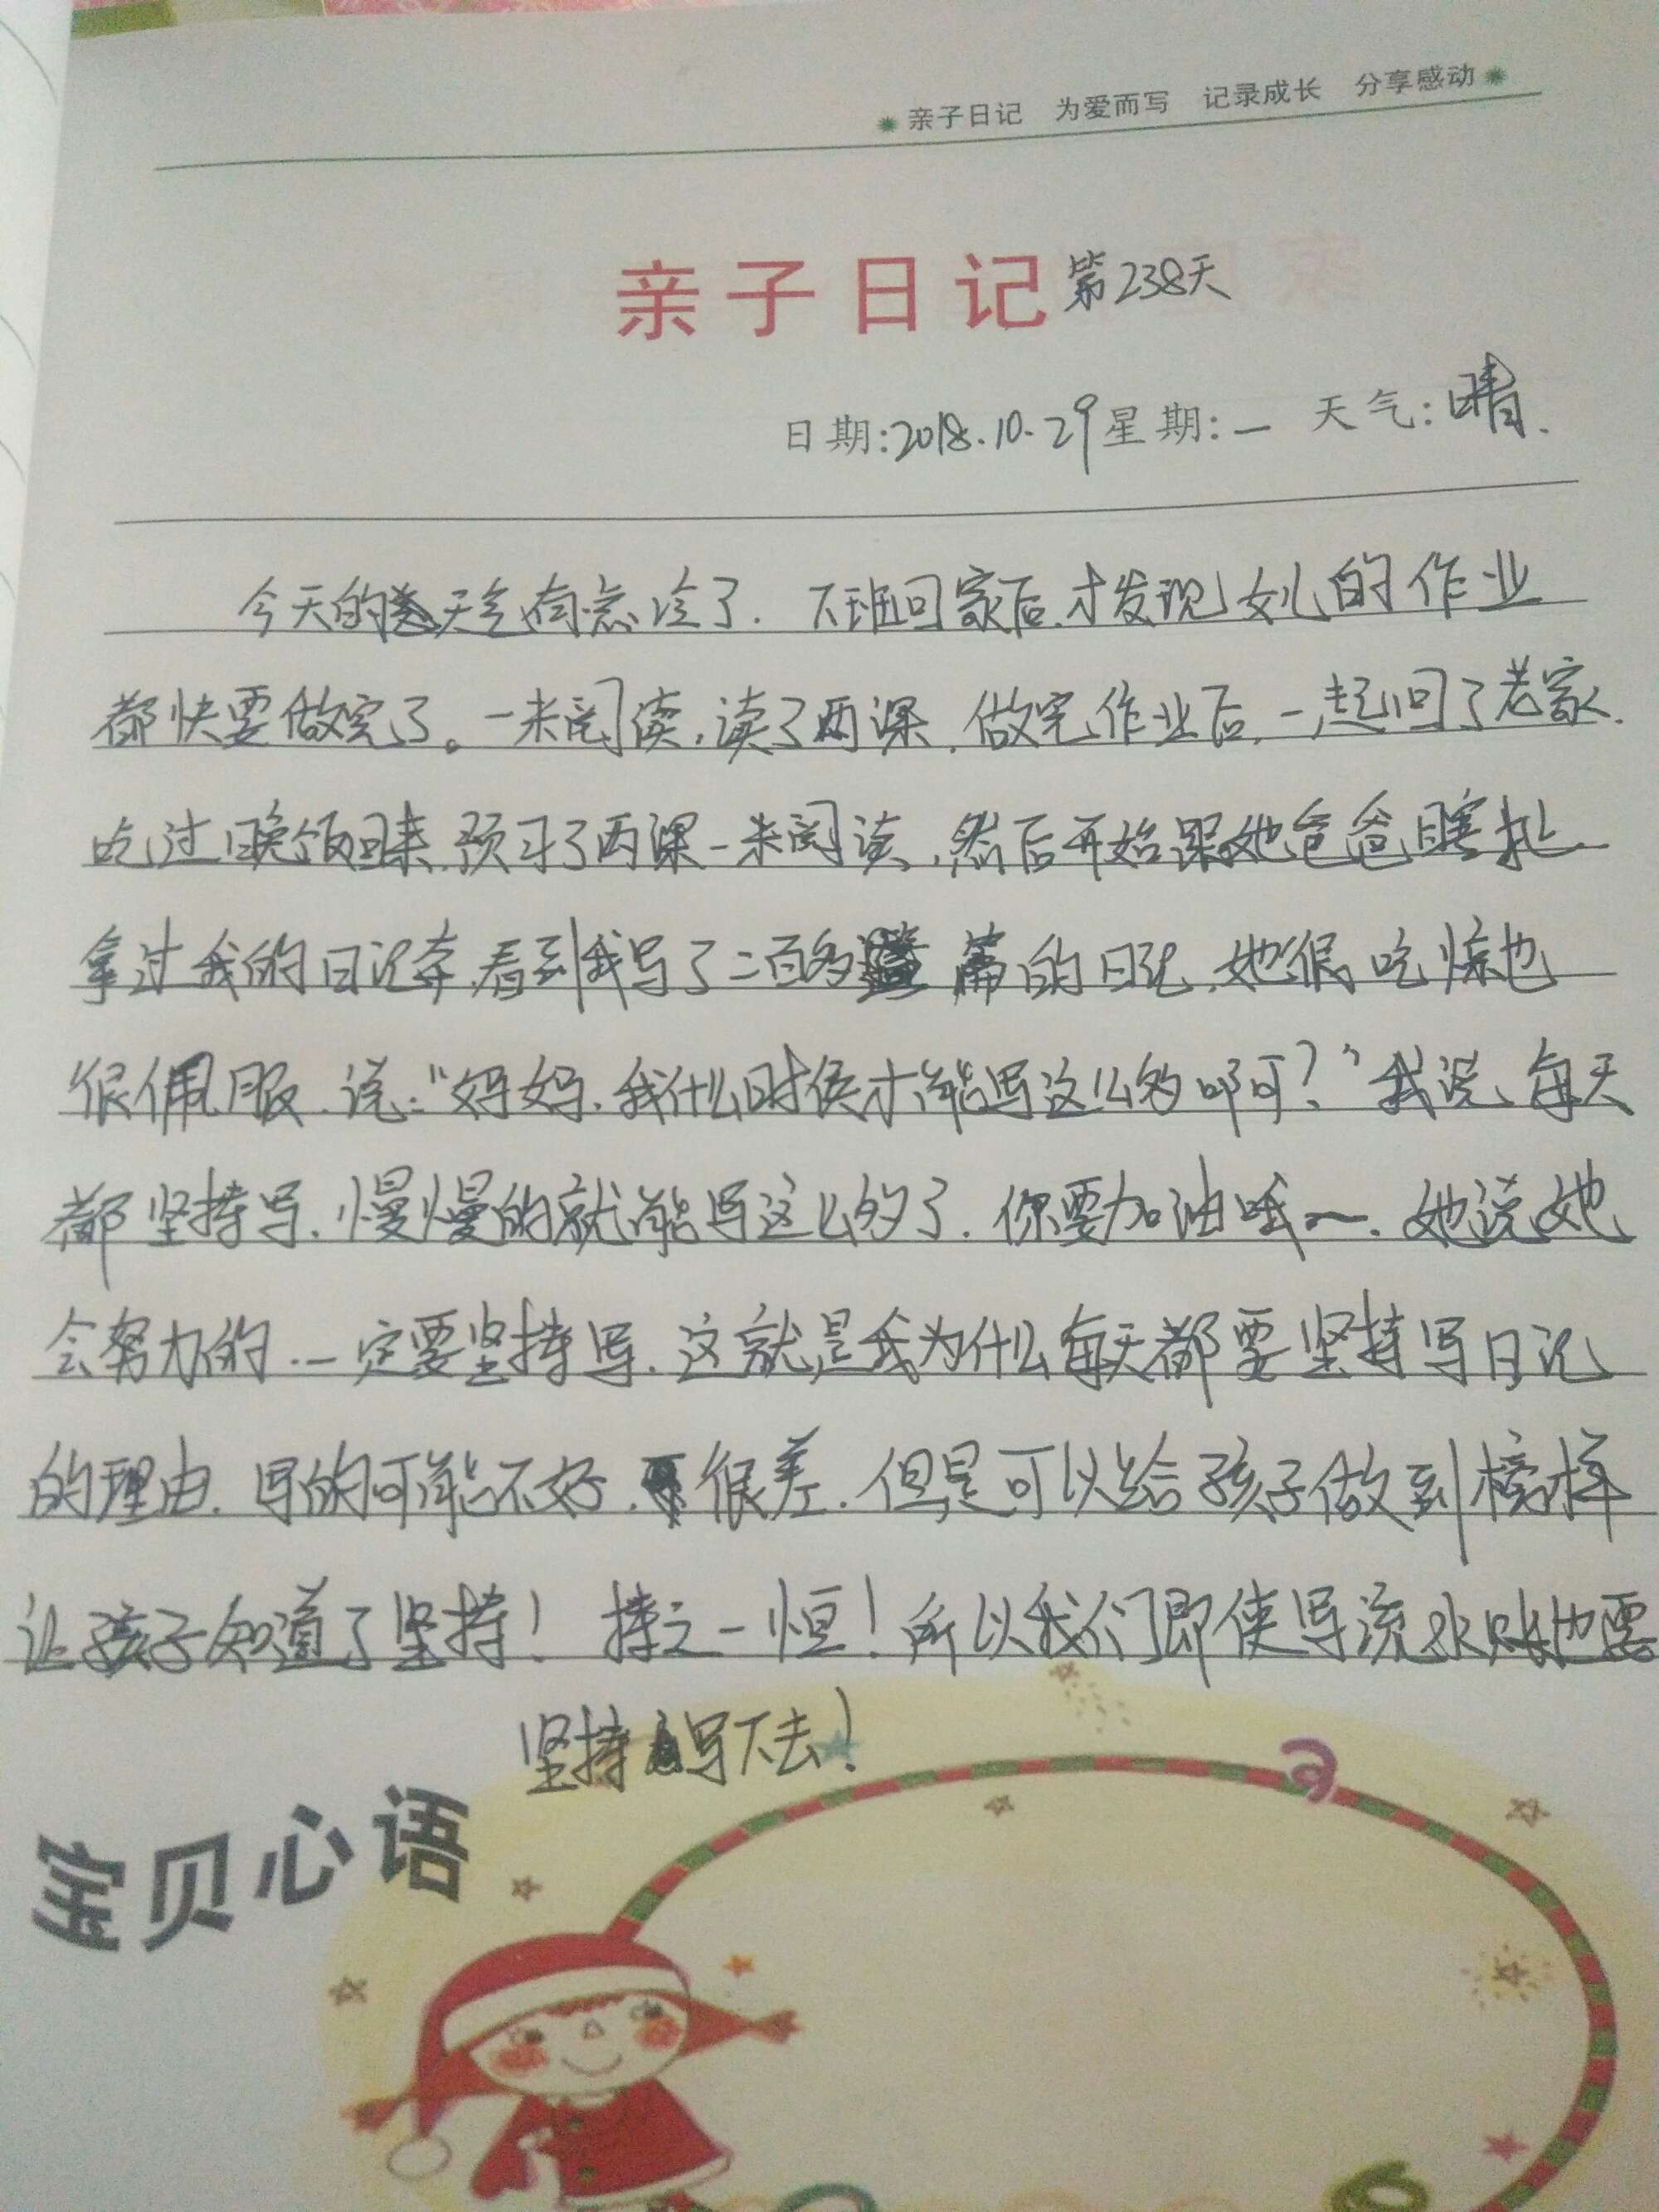 亲子日记 为爱而写 记录成长 分享感动
亲子日记 第238天
日期:2018.10.29 星期:一 天气:晴.
今天的天气有点冷了.下班回家后,才发现女儿的作业
都快要做完了。一米阅读,读了两课,做完作业后,一起回了老家.
吃过晚饭回来,预习了两课一米阅读,然后开始跟她爸爸瞎扯
拿过我的日记本,看到我写了二百多篇的日记,她很吃惊也
很佩服.说:“妈妈,我什么时侯才能写这么多啊?”我说、每天
都坚持写,慢慢的就能写这么多了.你要加油哦~.她说她
会努力的..一定要坚持写.这就是我为什么每天都要坚持写日记
的理由.写的可能不好.很差.但是可以给孩子做到榜样
让孩子知道了坚持!持之一恒!所以我们即使写流水账也要
坚持写下去!
宝贝心语